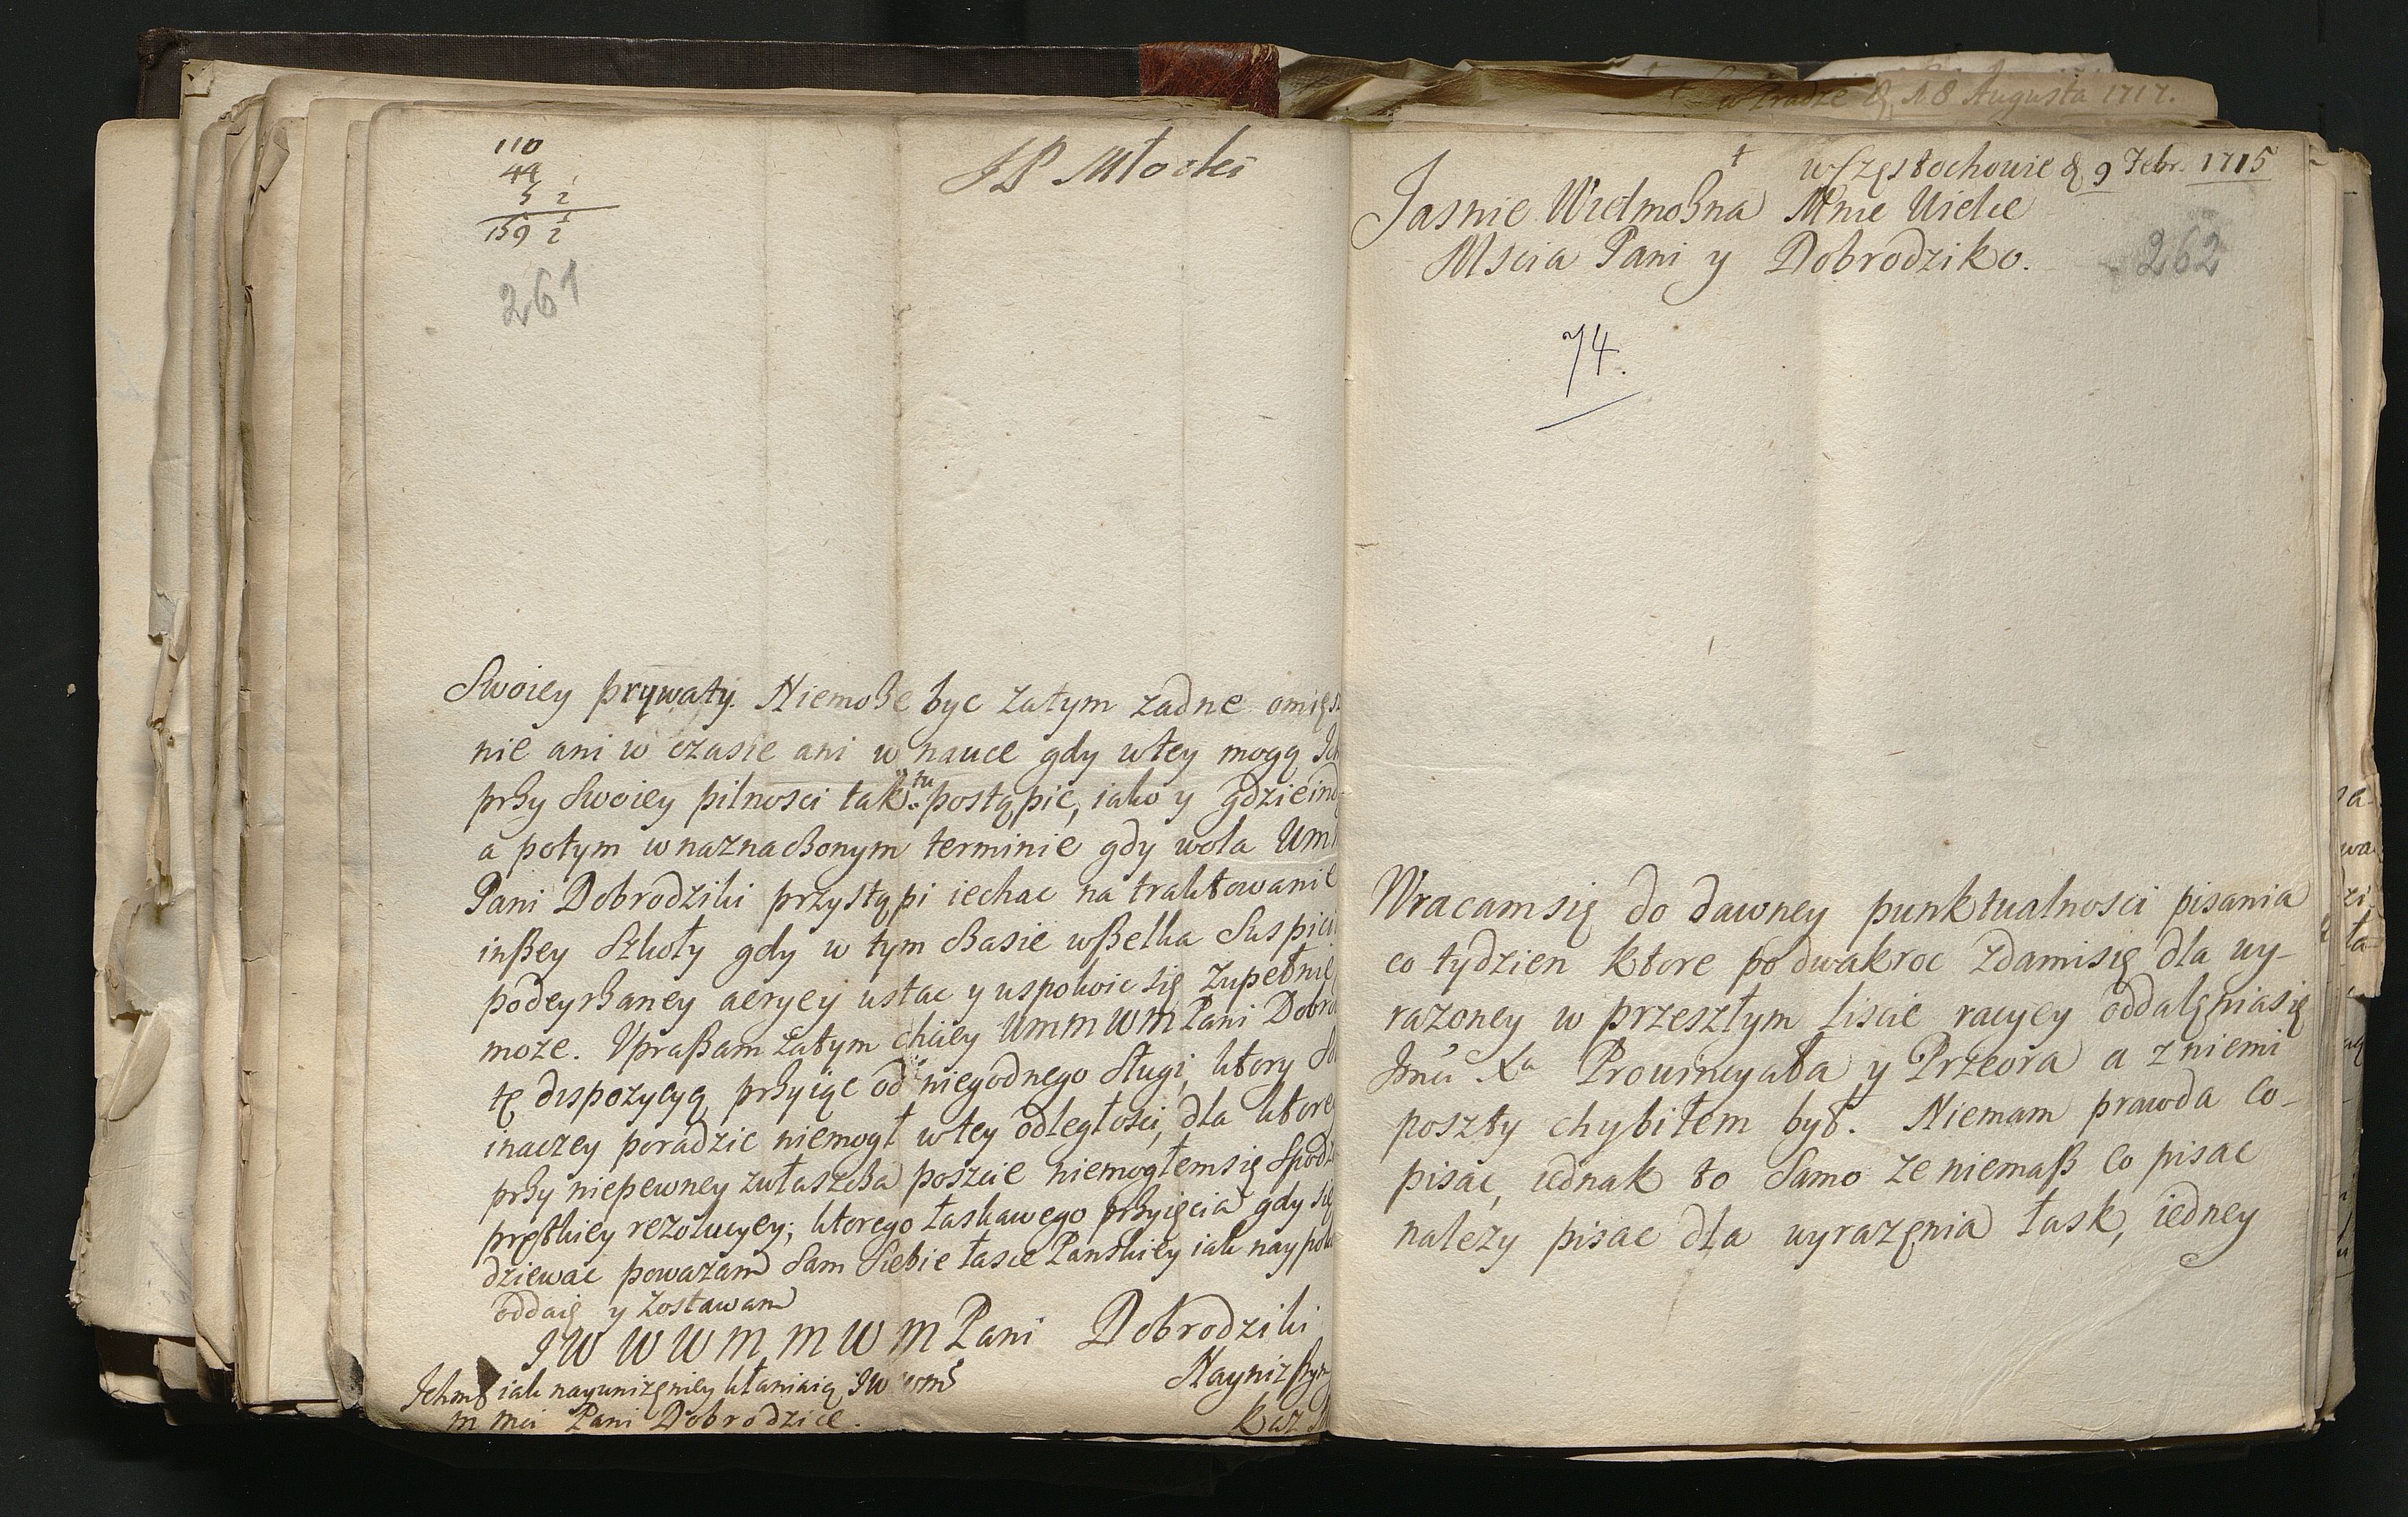 110
44
5 1/2
159 1/2
JP Młocki
261
Swoiey prywaty. Niemoße byc zatym zadne omięs
nie ani w czasie ani w nauce gdy wtey mogą
prßy Swoiey pilnosci tak tu postąpic, iako y gdzieind
a potym wnaznaczonym terminie gdy wola Um
Pani Dobrodziki przystąpi iechac na traktowanie
inßey Szkoły gdy w tym czasie wßelka Suspici
podeyrßaney aeryey ustac y uspokoic się zupełnie
moze. Vpraßam zatym chciey UmmWm Pani Dobro
tę dispozycyą prßyiąc od niegodnego Sługi, ktory
inaczey poradzic niemogł wtey odległosci, dla ktorey
prßy niepewney zwłaszcza poszcie niemogłemsię Spodz
prętkiey rezolucyey; ktorego łaskawego prßyięcia gdy się
dziewac powazam Sam Siebie łasce Panskiey iak naypok
oddaię y zostawam
JW W W m m W m Pani Dobrodziki
Ichmć iak nayunizęniey kłaniaią JW
m mci Pani Dobrodzice.
Naynizßym
Kaz
w Pradze d. 18 Augusta 1717.
+ w Częstochowie d. 9 Febr. 1715
Jasnie Wielmoßna Mnie Wielce
Mscia Pani y Dobrodziko.
262
74.
Wracamsię do dawney punktualnosci pisania
co tydzien ktore podwakroc zdamisię dla wy-
razoney w przeszłym liscie racyey oddalęniasię
Jmci Xa Prowincyała y Przeora a zniemi
poszty chybiłem był. Niemam prawda co-
pisac, iednak to Samo ze niemaß co pisac
nalezy pisac dla wyrazęnia łask, iedney